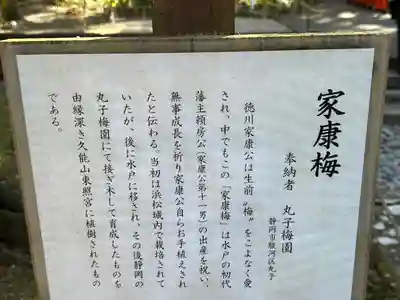 家康梅
奉納者　丸子梅園
静岡市駿河区丸子
徳川家康公は生前〝梅〟をこよなく愛
され、中でもこの「家康梅」は水戸の初代
藩主頼房公（家康公第十一男）の出産を祝い、
無事成長を祈り家康公自らお手植えされ
たと伝わる。当初は浜松城内で栽培されて
いたが、後に水戸に移され、その後静岡の
丸子梅園にて接ぎ木して育成したものを
由縁深き久能山東照宮に植樹されたもの
である。